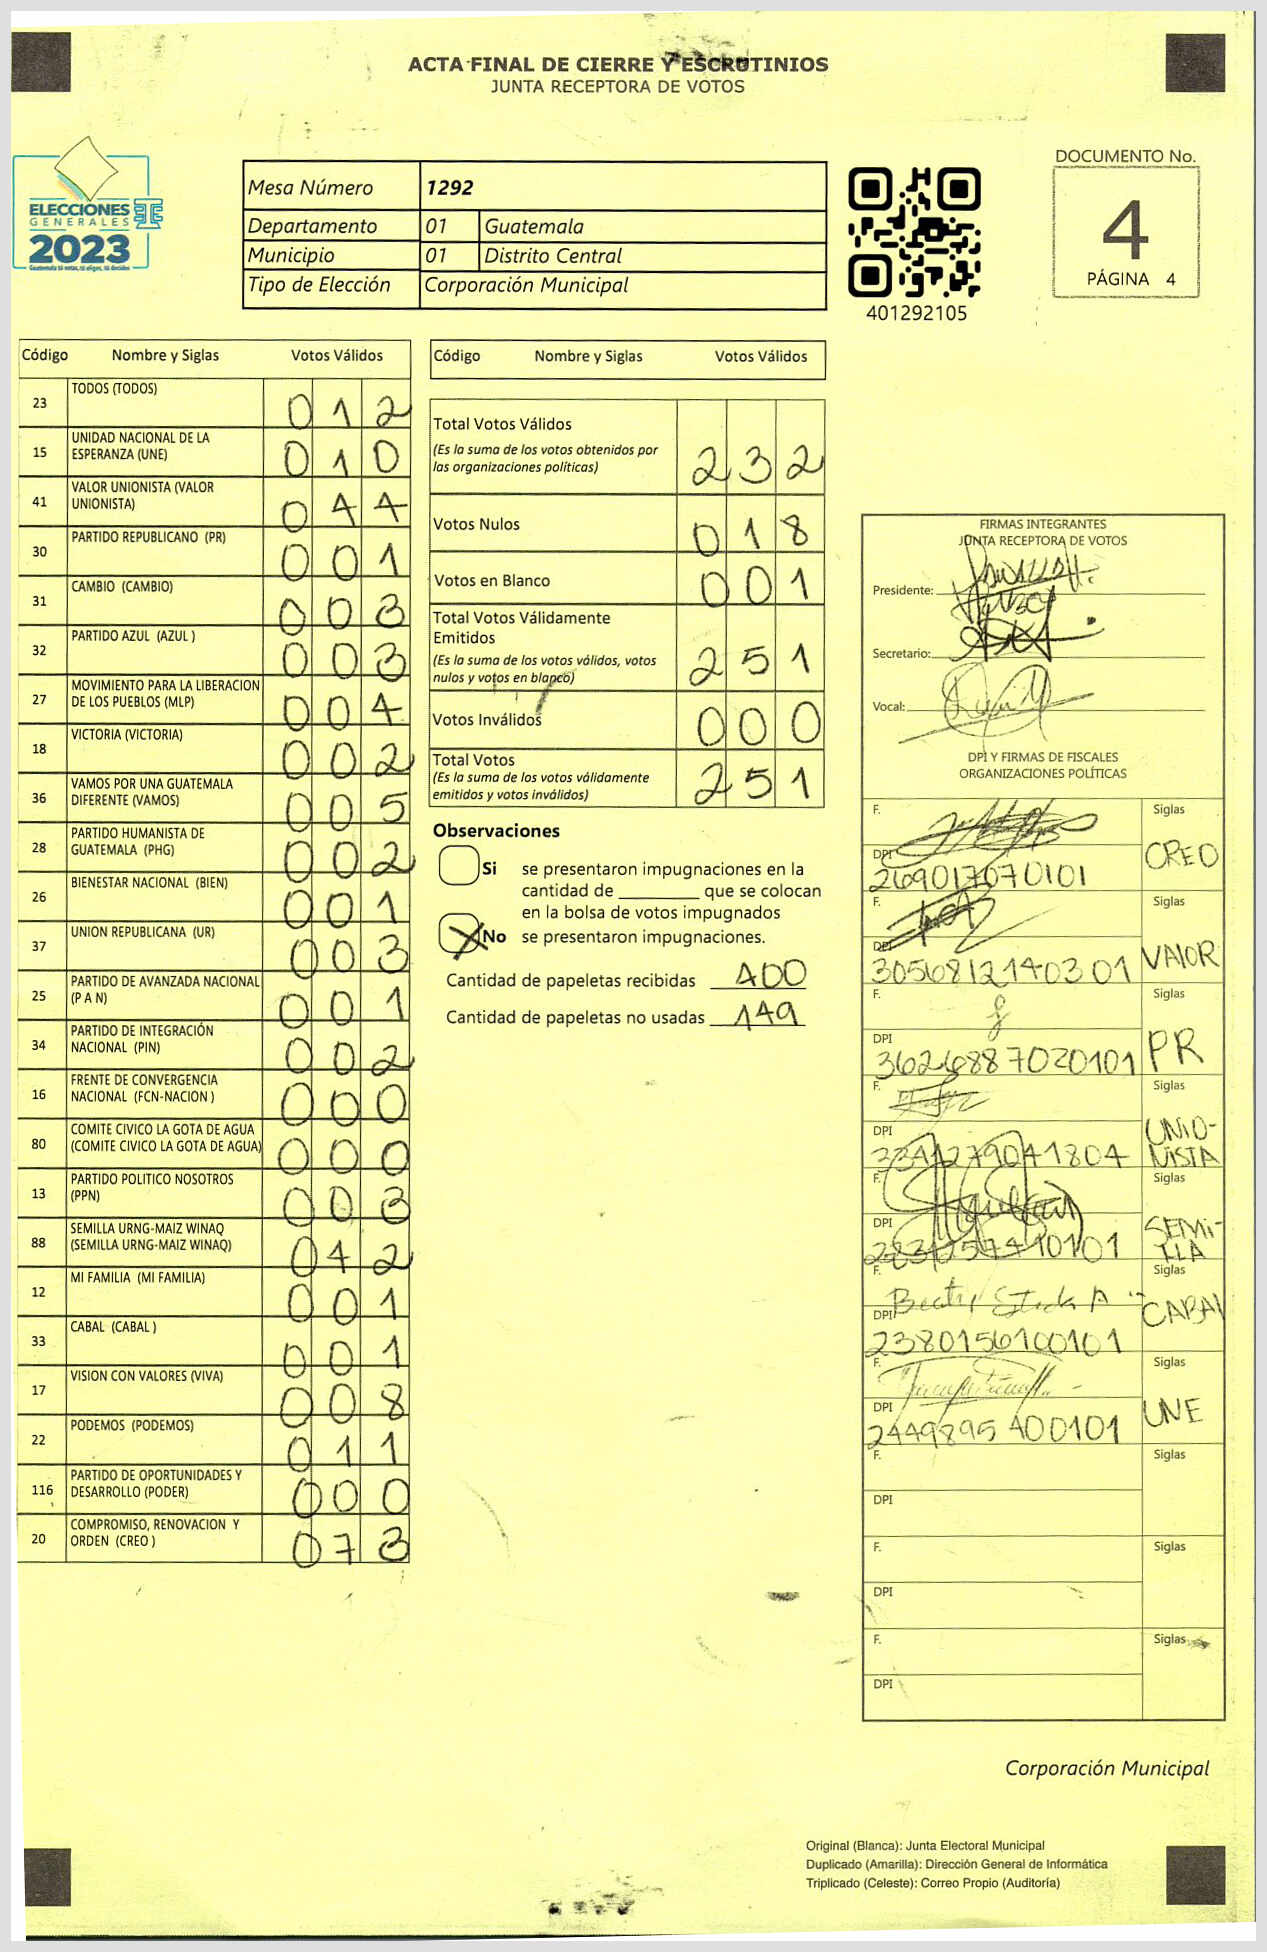 ACTA FINAL DE CIERRE Y ESCRUTINIOS
JUNTA RECEPTORA DE VOTOS
ELECCIONES
GENERALES
2023
Guatemala tú votas, tú eliges, tú decides
Mesa Número 1292
Departamento 01 Guatemala
Municipio 01 Distrito Central
Tipo de Elección Corporación Municipal
401292105
DOCUMENTO No.
4
PÁGINA 4
Código Nombre y Siglas Votos Válidos
23 TODOS (TODOS) 0 1 2
15 UNIDAD NACIONAL DE LA
ESPERANZA (UNE) 0 1 0
41 VALOR UNIONISTA (VALOR
UNIONISTA) 0 4 4
30 PARTIDO REPUBLICANO (PR) 0 0 1
31 CAMBIO (CAMBIO) 0 0 3
32 PARTIDO AZUL (AZUL ) 0 0 3
27 MOVIMIENTO PARA LA LIBERACION
DE LOS PUEBLOS (MLP) 0 0 4
18 VICTORIA (VICTORIA) 0 0 2
36 VAMOS POR UNA GUATEMALA
DIFERENTE (VAMOS) 0 0 5
28 PARTIDO HUMANISTA DE
GUATEMALA (PHG) 0 0 2
26 BIENESTAR NACIONAL (BIEN) 0 0 1
37 UNION REPUBLICANA (UR) 0 0 3
25 PARTIDO DE AVANZADA NACIONAL
(P A N) 0 0 1
34 PARTIDO DE INTEGRACIÓN
NACIONAL (PIN) 0 0 2
16 FRENTE DE CONVERGENCIA
NACIONAL (FCN-NACION ) 0 0 0
80 COMITE CIVICO LA GOTA DE AGUA
(COMITE CIVICO LA GOTA DE AGUA) 0 0 0
13 PARTIDO POLITICO NOSOTROS
(PPN) 0 0 3
88 SEMILLA URNG-MAIZ WINAQ
(SEMILLA URNG-MAIZ WINAQ) 0 4 2
12 MI FAMILIA (MI FAMILIA) 0 0 1
33 CABAL (CABAL ) 0 0 1
17 VISION CON VALORES (VIVA) 0 0 8
22 PODEMOS (PODEMOS) 0 1 1
116 PARTIDO DE OPORTUNIDADES Y
DESARROLLO (PODER) 0 0 0
20 COMPROMISO, RENOVACION Y
ORDEN (CREO ) 0 7 3
Código Nombre y Siglas Votos Válidos
Total Votos Válidos
(Es la suma de los votos obtenidos por
las organizaciones políticas) 2 3 2
Votos Nulos 0 1 8
Votos en Blanco 0 0 1
Total Votos Válidamente
Emitidos
(Es la suma de los votos válidos, votos
nulos y votos en blanco) 2 5 1
Votos Inválidos 0 0 0
Total Votos
(Es la suma de los votos válidamente
emitidos y votos inválidos) 2 5 1
Observaciones
Si se presentaron impugnaciones en la
cantidad de ________ que se colocan
en la bolsa de votos impugnados
No se presentaron impugnaciones.
Cantidad de papeletas recibidas 400
Cantidad de papeletas no usadas 149
FIRMAS INTEGRANTES
JUNTA RECEPTORA DE VOTOS
Presidente:
Secretario:
Vocal:
DPI Y FIRMAS DE FISCALES
ORGANIZACIONES POLÍTICAS
F. Siglas
DPI CREO
2690170070101
F. Siglas
DPI VALOR
3056812140301
F. Siglas
DPI PR
3626887020101
F. Siglas
DPI UNIO-
NISTA
F. Siglas
DPI SEMI-
LLA
F. Siglas
DPI CABAL
2380156100101
F. Siglas
DPI UNE
2449895400101
F. Siglas
DPI
F. Siglas
DPI
F. Siglas
DPI
Corporación Municipal
Original (Blanca): Junta Electoral Municipal
Duplicado (Amarilla): Dirección General de Informática
Triplicado (Celeste): Correo Propio (Auditoría)